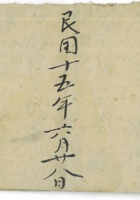 民国十五年六月廿八日